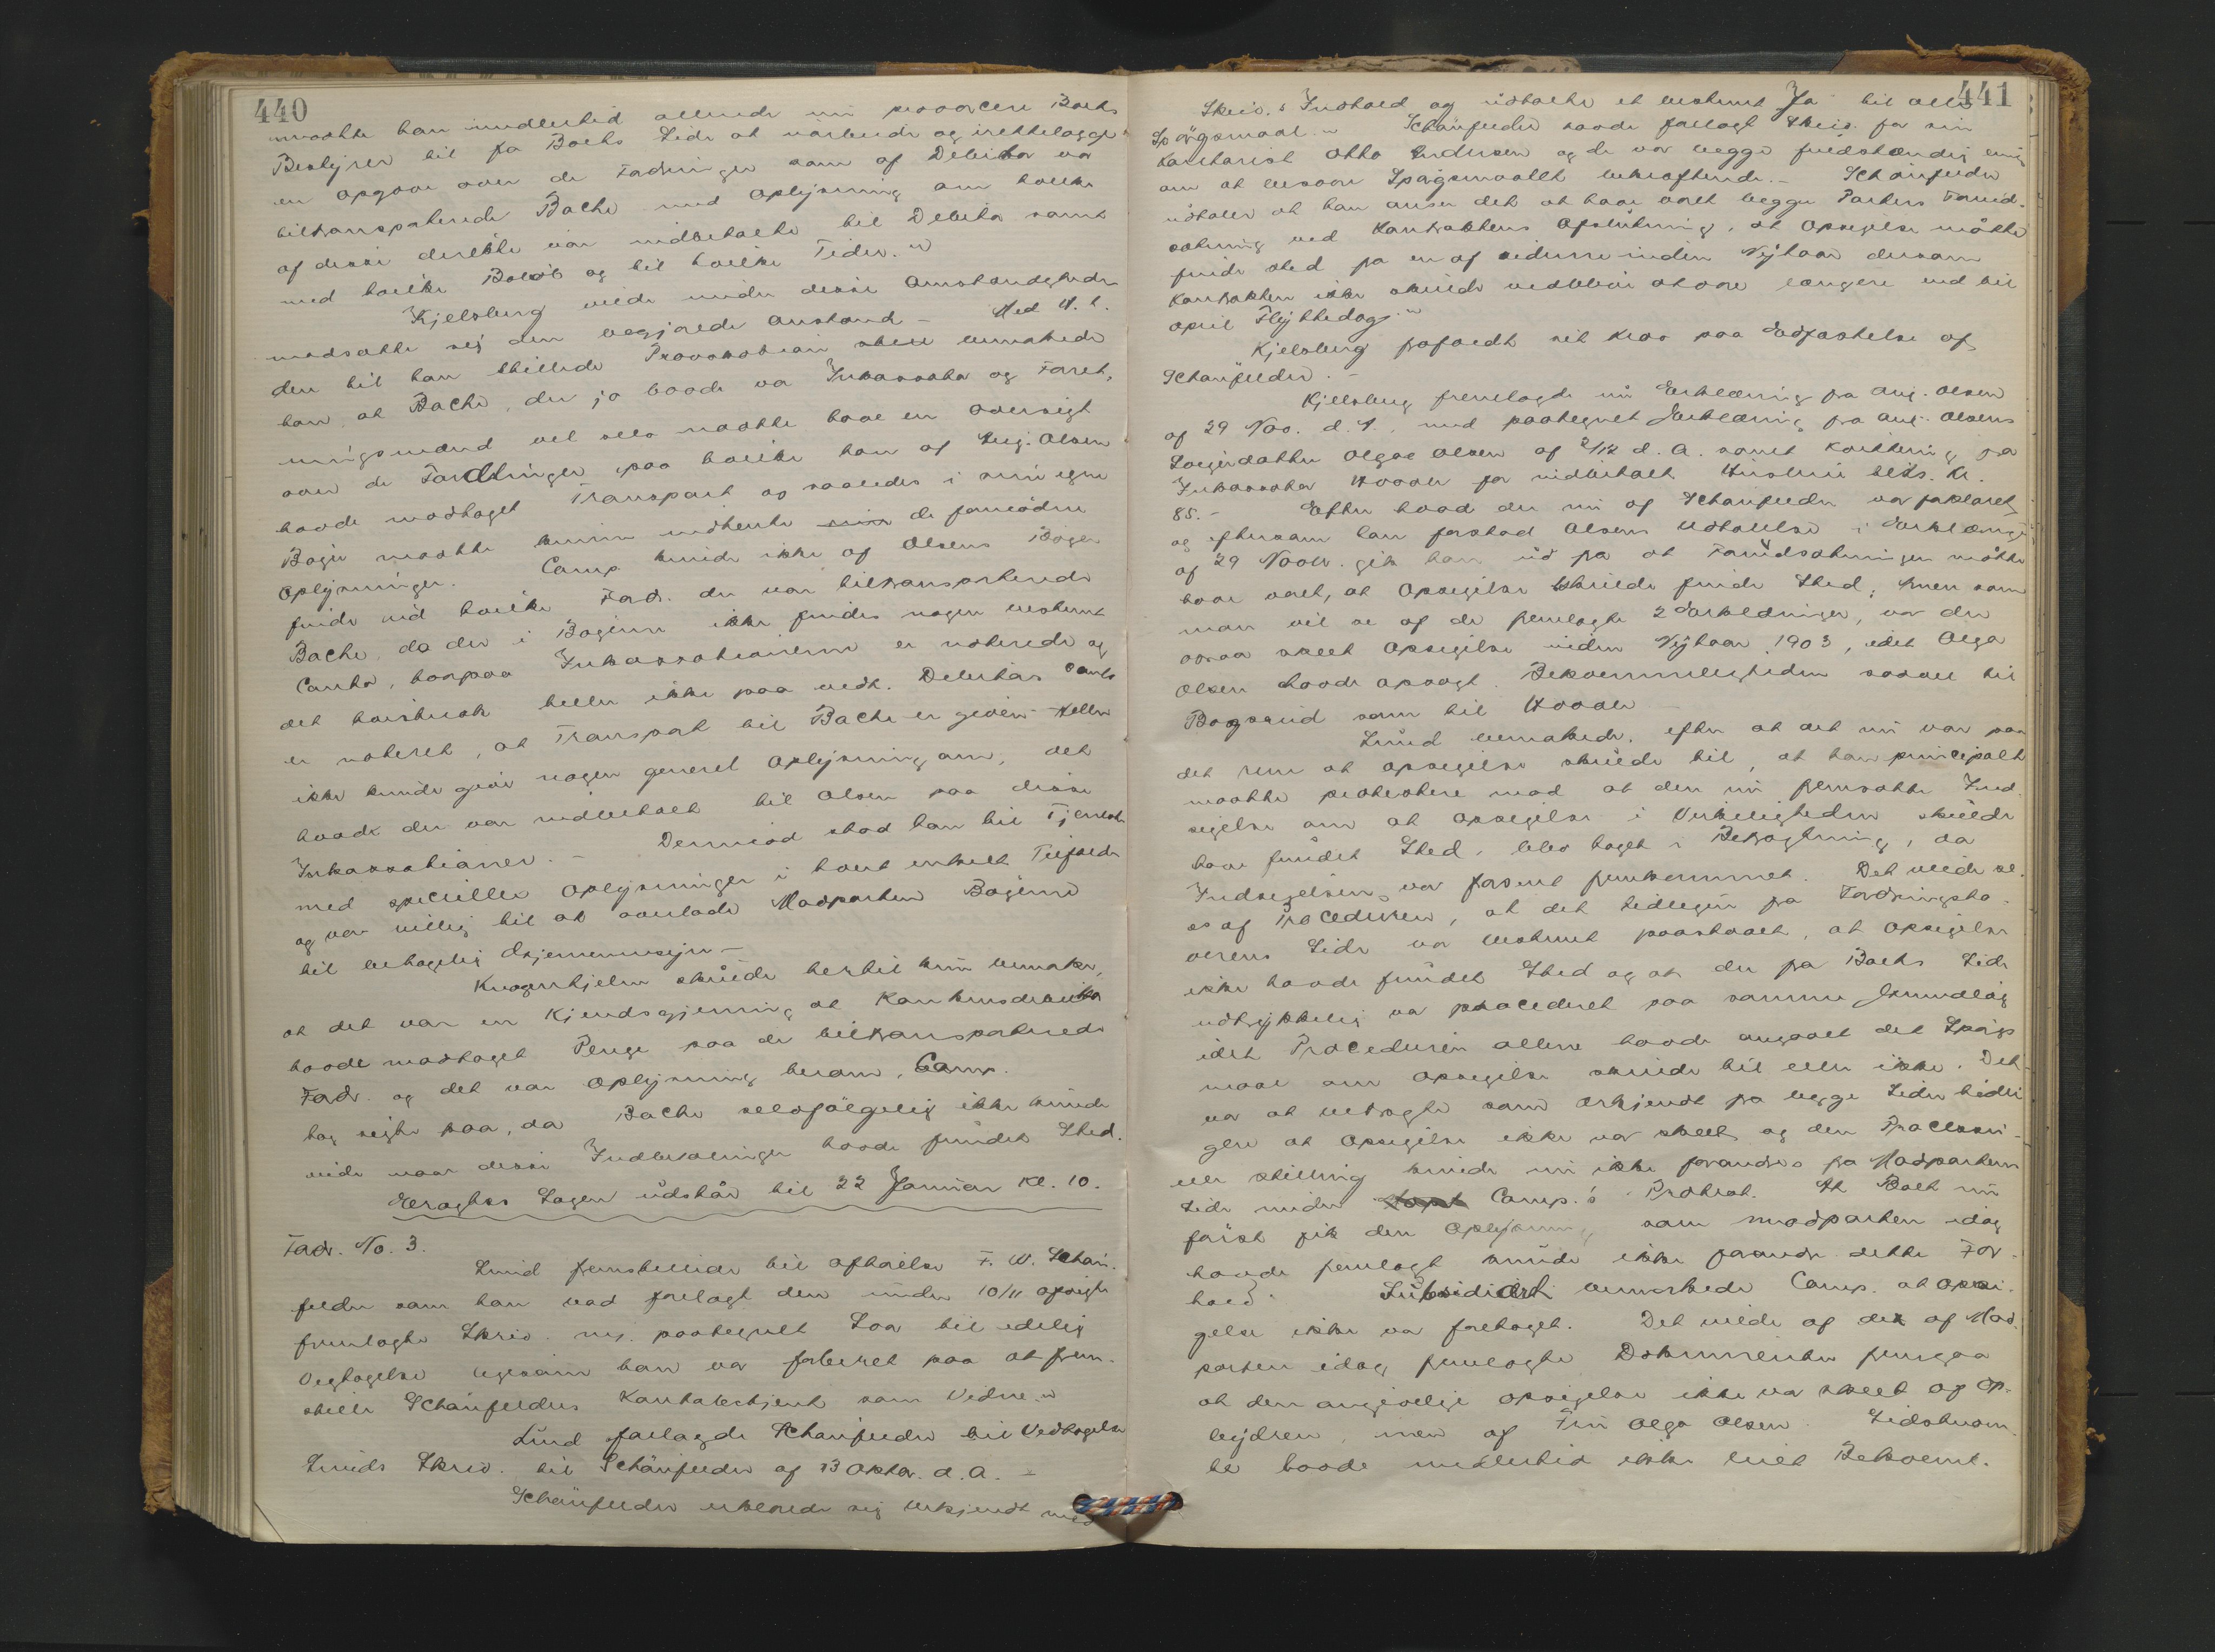 440
maatte han imidlertid allerede nu provocere Boets
Bestyrer til fra Boets Side at udarbeide og irettelægge
en Opgave over de Fordringer som af Debitor var
tiltransporterede Bache med Oplysning om hvilke
af disse direkte var indbetalte til Debitor samt
med hvilke Beløb og til hvilke Tider."
Kjelsberg vilde under disse Omstændigheder
modsætte sig den begjærede Anstand – Med H. t.
den til ham stillede Provokation skal bemærkede
han, at Bache, der jo baade var Inkassator og Forret-
ningsmand vel selv maatte have en Oversigt
over de Fordringer, paa hvilke han af Aug. Olsen
havde modtaget Transport og saaledes i sine egne
Bøger maatte kunne udhente de fornødne
Oplysninger. Comp. kunde ikke af Olsens Bøger
finde ud hvilke Ford. der var tiltransporterede
Bache, da der i Bøgerne ikke findes nogen bestemt
Conto, hvorpaa Inkassationerne er noterede og
det heller ikke paa vedk. Debitors Conto
er noteret, at Transport til Bache er given – Heller
ikke kunde give nogen generel Oplysning om, det
havde der var indbetalt til Olsen paa disse
Inkassationer. – Derimod stod han til Tjeneste
med specielle Oplysninger i hvert enkelt Tilfælde
og var villig til at overlade Modparten Bøgerne
til behagelig Gjennemsyn –
Knagenhjelm skulde hertil kun bemærke,
at det var en Kjendsgjerning at Konkursdebitor
havde modtaget Penge paa de tiltransporterede
Ford. og det var Oplysning herom, Comp.
tog sigte paa, da Bache selvfølgelig ikke kunde
vide naar disse Indbetalinger havde fundet Sted.
Eragtes Sagen udstår til 22 Januar Kl. 10.
Ford. No. 3.
Lund fremstillede til Afhørelse F. W. Schøn-
felder som han bad forelagt den under 10/11 afvigte
fremlagte Skriv. nej. paategnet Svar til edelig
Vedtagelse ligesom han var forberet paa at frem-
stille Schønfelders Kontorbetjent som Vidne."
Lund forelagde Schønfelder til Vedtagelse
Lunds Skriv. til Schønfelder af 13 Oktbr. d. A. –
Schønfelder erklærede sig bekjendt med
441
Skriv.s Indhold og udtalte et bestemt Ja til alle
Spørgsmaal." Schønfelder havde forelagt Skriv. for sin
Kontorist Otto Andersen og de var begge fuldstændig enig
om at besvare Spørgsmaalet bekræftende. – Schønfelder
udtaler at han anser det at have været begge Parters Forud-
sætning ved Kontraktens Afslutning, at Opsigelse måtte
finde sted fra en af siderne inden Nytaar dersom
Kontrakten ikke skulde vedblive at være længere end til
April Flyttedag."
"Kjelsberg frafaldt sit Krav paa Edfæstelse af
Schønfelder. –
Kjelsberg fremlagde nu Erklæring fra Aug. Olsen
af 29 Nov. d. A., med paategnet Erklæring fra Aug. Olsens
Svigerdatter Olga Olsen af 2/12 d. A. samt Kvittering fra
Inkassator for indbetalt Husleie Kr.
85. – Efter hvad der nu af Schønfelder var forklaret
og eftersom han forstod Olsens Udtalelse i Erklæringen
af 29 Novbr. gik han ud fra at Forudsætningen måtte
have været, at Opsigelse skulde finde Sted; men som
man vil se af de fremlagte 2 Erklæringer, var der
ogsaa skeet Opsigelse inden Nytaar 1903, idet Olga
Olsen havde opsagt Bekvemmeligheden saavel til
Bogerud som til
Lund bemærkede, efter at det nu var paa
det rene at Opsigelse skulde til, at han principalt
maatte protestere mod at den nu fremsatte Ind-
sigelse om at Opsigelse i Virkeligheden skulde
have fundet Sted, blev taget i Betragtning, da
Indsigelsen var forsent fremkommet. Det vilde se-
es af Proceduren, at det tidligere fra Fordringsha-
verens Side var bestemt paastaaet, at Opsigelse
ikke havde fundet Sted og at der fra Boets Side
udtrykkelig var procederet paa samme Grundlag
idet Proceduren alene havde angaaet det Spørgs-
maal om Opsigelse skulde til eller ikke. Det
var at betragte som Erkjendt fra begge Sider tidli-
gere at Opsigelse ikke var skeet, og den Processu-
elle stilling kunde nu ikke forandres fra Modpartens
Side under Comp.'s Protest. At Boet nu
først fik den Oplysning som modparten idag
havde fremlagt kunde ikke forandre dette For-
hold. Subsidiært bemærkede Comp. at Opsi-
gelse ikke var foretaget. Det vilde af de af Mod-
parten idag fremlagte Dokumenter fremgaa
at den angivelige Opsigelse ikke var skeet af Op-
leyeren, men af Fru Olga Olsen. Sidstnævn-
te havde imidlertid ikke leiet Bekvemt.